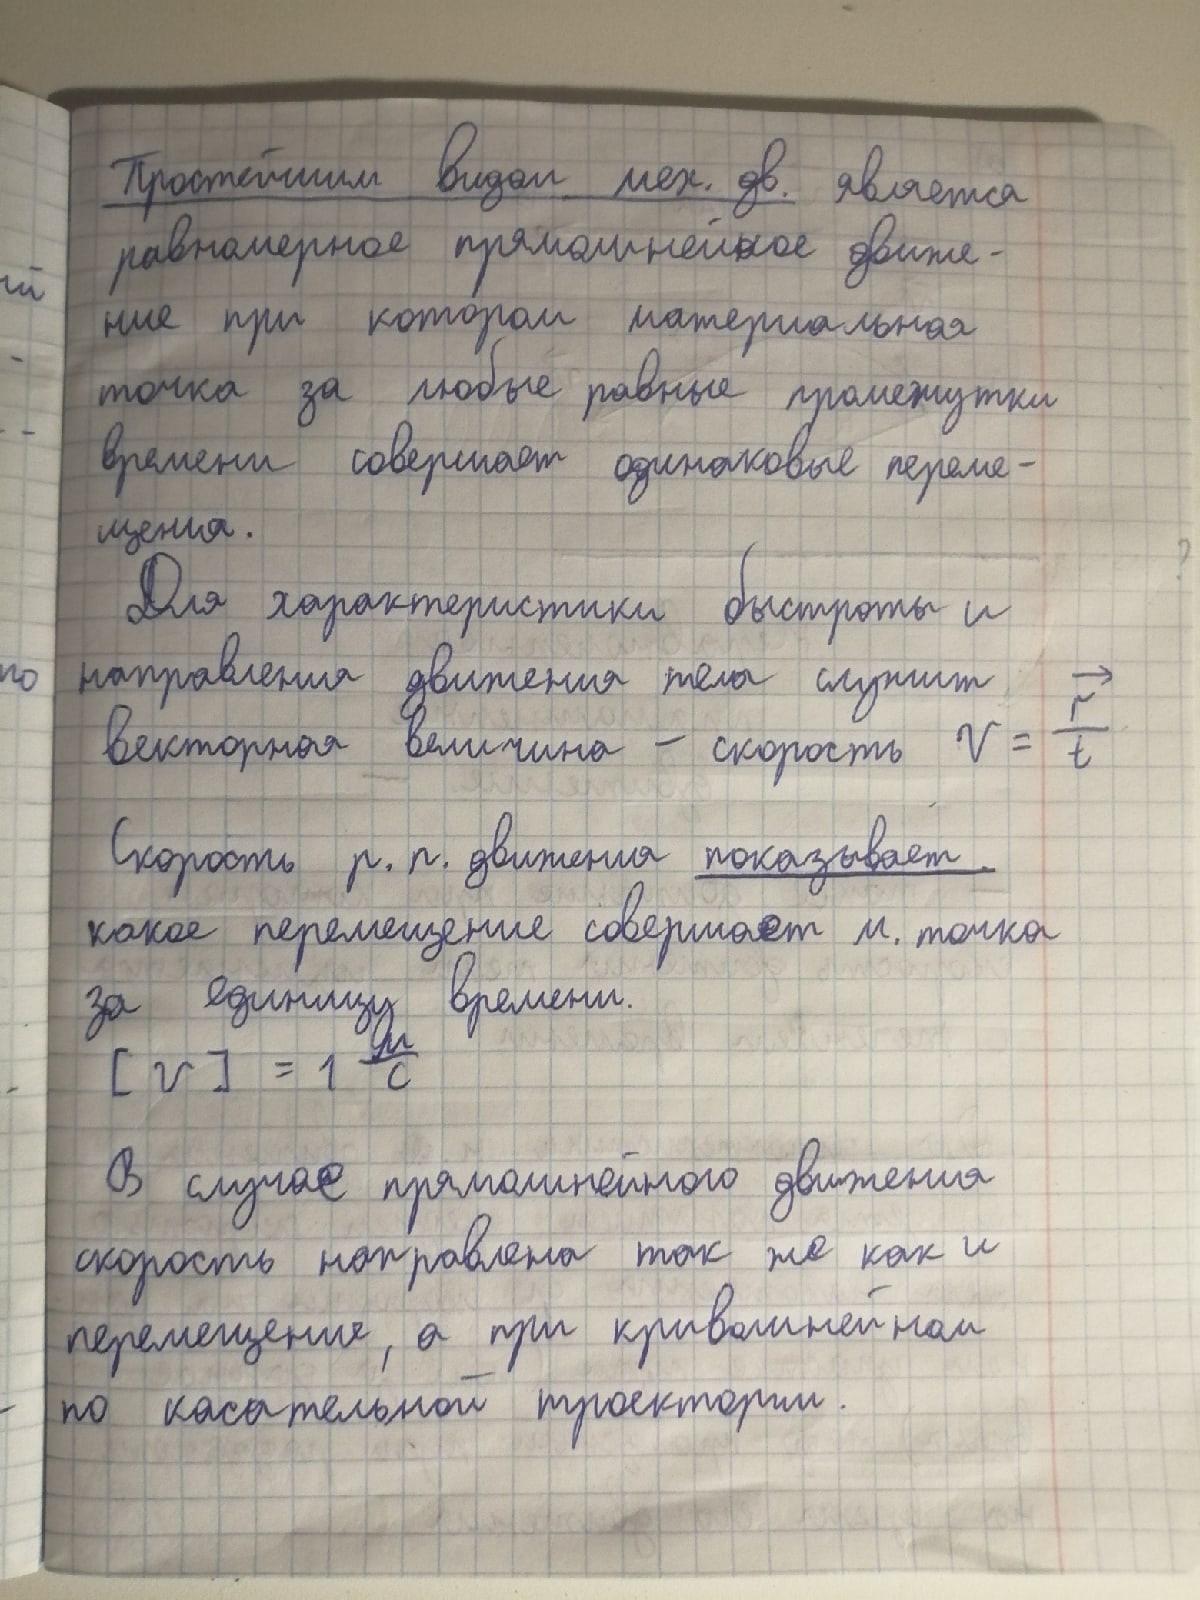 Простейшим видом мех. дв. является
равномерное прямолинейное движе-
ние при котором материальная
точка за любые равные промежутки
времени совершает одинаковые переме-
щения.
Для характеристики быстроты и
направления движения тела служит
векторная величина - скорость V = r⃗/t
Скорость р. п. движения показывает
какое перемещение совершает м. точка
за единицу времени.
[V] = 1 м/с
В случае прямолинейного движения
скорость направлена так же как и
перемещение, а при криволинейном
по касательной троектории.